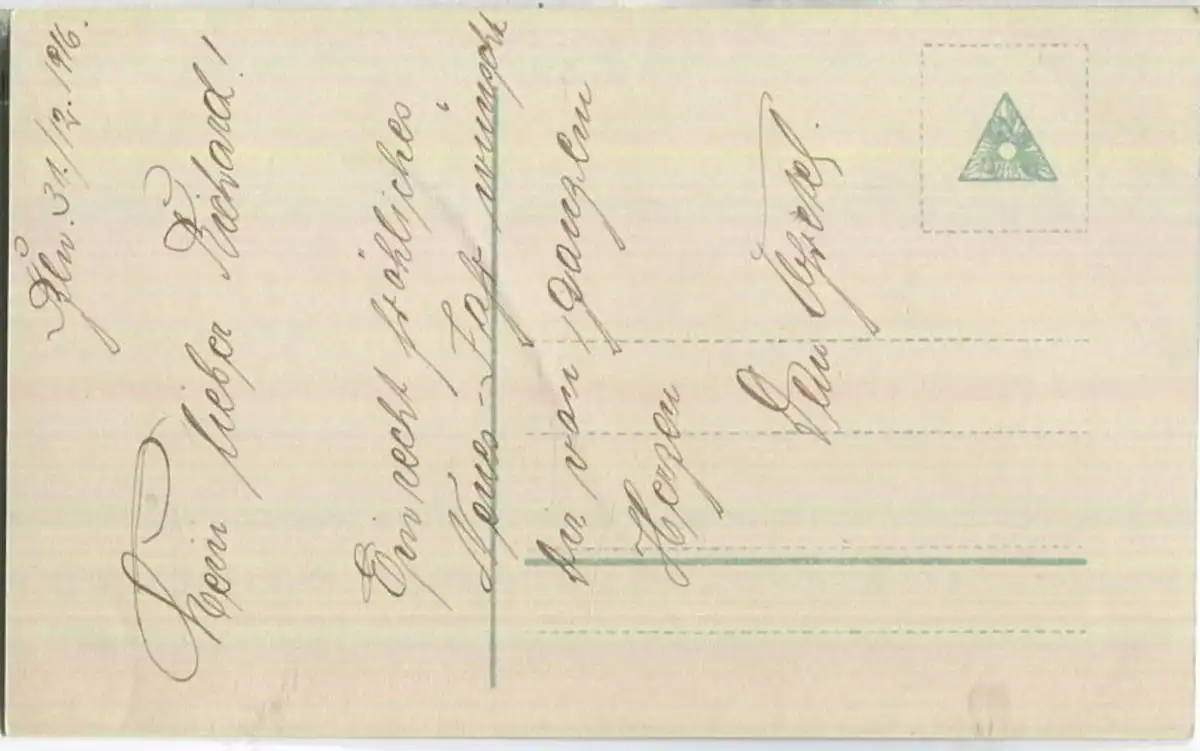 31/12. 1916.
Mein lieber Richard!
Ein recht fröhliches
Neues Jahr wünscht
Dir von ganzem
Herzen